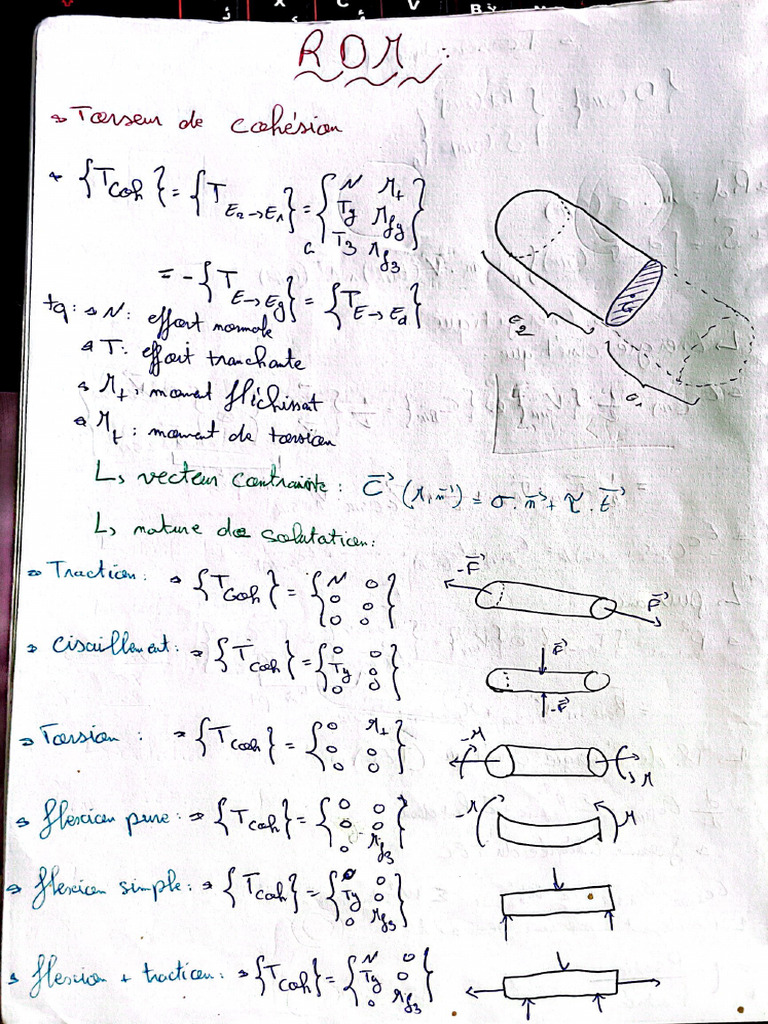 RDM :
→ Torseur de cohésion
* {T_coh} = {T_E₂→E₁} = {N M_t / T_y M_fy / T_z M_fz}_G
= -{T_E→E_g} = {T_E→E_d}
tq: → N: effort normale
→ T: effort tranchante
→ M_f: moment fléchissat
→ M_t: moment de torsion
e_2
e_1
G
L, vecteur contrainte: C⃗ (M, n⃗) = σ.n⃗ + τ.t⃗
L, nature de solutation:
→ Traction: → {T_coh} = {N 0 / 0 0 / 0 0}
-F⃗
F⃗
→ cisaillement: → {T_coh} = {0 0 / T_y 0 / 0 0}
F⃗
-F⃗
→ Torsion : → {T_coh} = {0 M_t / 0 0 / 0 0}
-M
M
→ flexion pure: → {T_coh} = {0 0 / 0 0 / 0 M_fz}
-M
M
→ flexion simple: → {T_coh} = {0 0 / T_y 0 / 0 M_fz}
→ flexion + traction: → {T_coh} = {N 0 / T_y 0 / 0 M_fz}